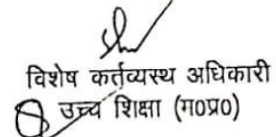 विशेष कर्तव्यस्थ अधिकारी
उच्च शिक्षा (म0प्र0)